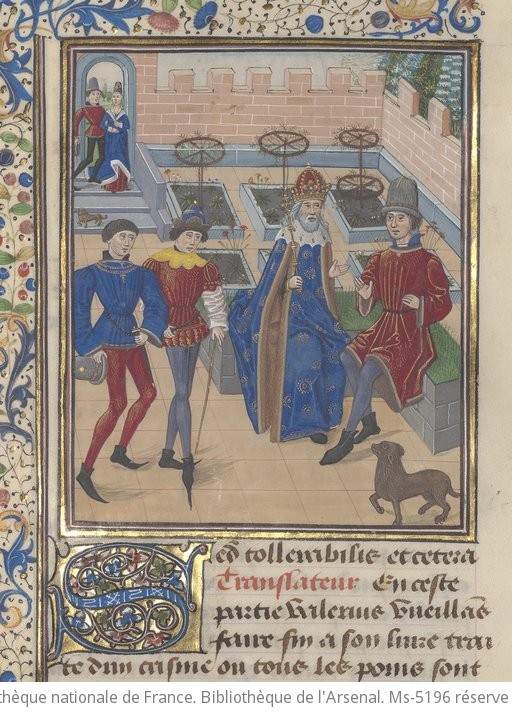 ed tollerabilis et cetera
Translateur En ceste
partie Valerius vueillāt
faire fin a son livre trai
te dun crisme ou tous les poins sont
thèque nationale de France. Bibliothèque de l'Arsenal. Ms-5196 réserve